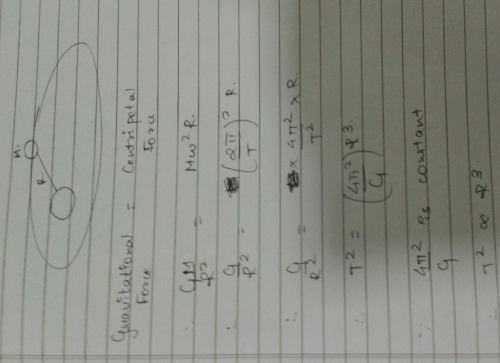 M.
R
Gravitational Force = Centripetal Force
∴ GM/R² = Mω²R.
∴ G/R² = (2π/T)² R.
∴ G/R² = × 4π²/T² × R.
∴ T² = (4π²/G) R³.
∵ 4π²/G is constant
∴ T² ∝ R³.